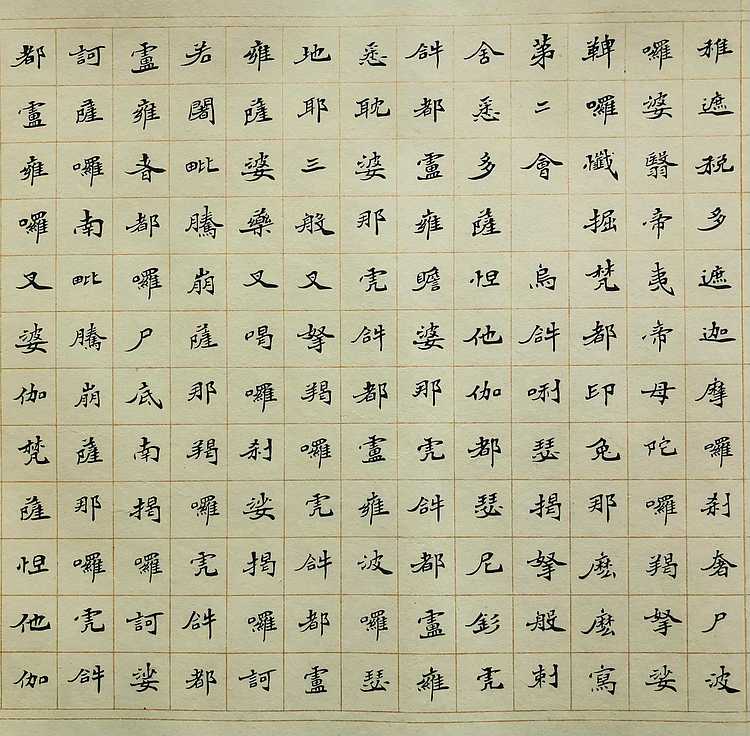 稚遮税多遮迦摩囉剎奢尸波
囉婆翳帝夷帝母陀囉羯拏娑
鞞囉懺掘梵都印兔那麽麽寫
第二會 烏𤙖唎瑟揭拏般刺
舍悉多薩怛他伽都瑟尼釤虎
𤙖都盧雍瞻婆那虎𤙖都盧雍
悉耽婆那虎𤙖都盧雍波囉瑟
地耶三般叉拏羯囉虎𤙖都盧
雍薩婆藥叉喝囉剎娑揭囉訶
若闍毗騰崩薩那羯囉虎𤙖都
盧雍者都囉尸底南揭囉訶娑
訶薩囉南毗騰崩薩那囉虎𤙖
都盧雍囉叉婆伽梵薩怛他伽